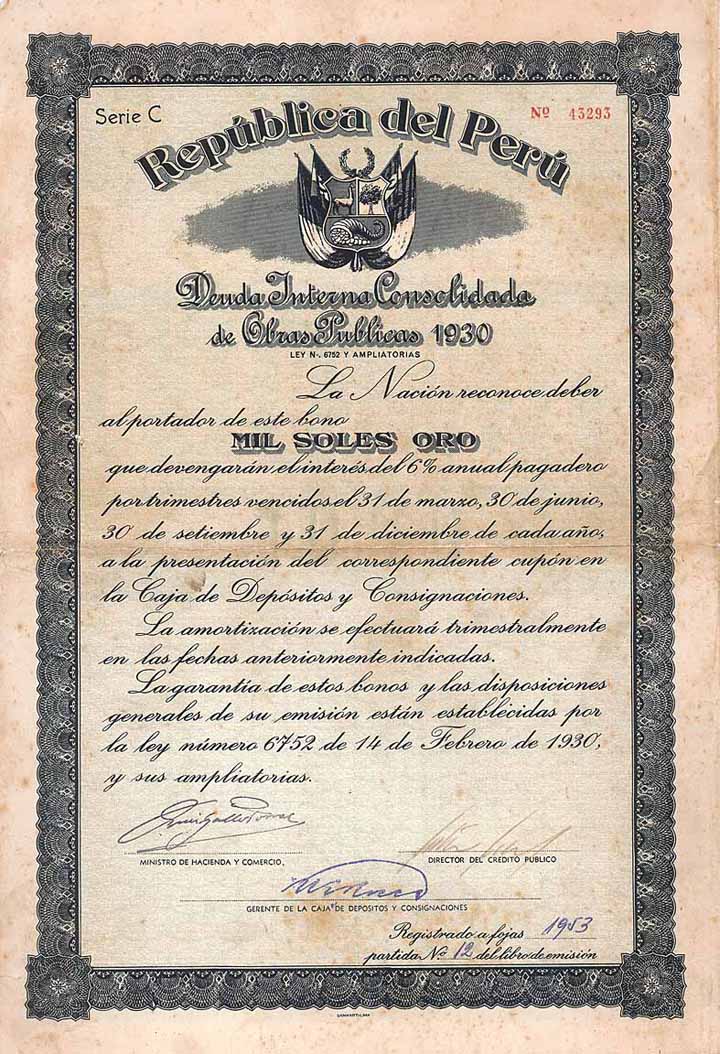 Serie C
Nº 43293
República del Perú
Deuda Interna Consolidada
de Obras Publicas 1930
LEY N·. 6752 Y AMPLIATORIAS
La Nación reconoce deber
al portador de este bono
MIL SOLES ORO
que devengarán el interés del 6% anual pagadero
por trimestres vencidos el 31 de marzo, 30 de junio,
30 de setiembre y 31 de diciembre de cada año,
a la presentación del correspondiente cupón en
la Caja de Depósitos y Consignaciones.
La amortización se efectuará trimestralmente
en las fechas anteriormente indicadas.
La garantía de estos bonos y las disposiciones
generales de su emisión están establécidas por
la ley número 6752 de 14 de Febrero de 1930,
y sus ampliatorias.
MINISTRO DE HACIENDA Y COMERCIO,
DIRECTOR DEL CREDITO PUBLICO
GERENTE DE LA CAJA DE DEPOSITOS Y CONSIGNACIONES
Registrado a fojas 1953
partida No 12 del libro de emisión